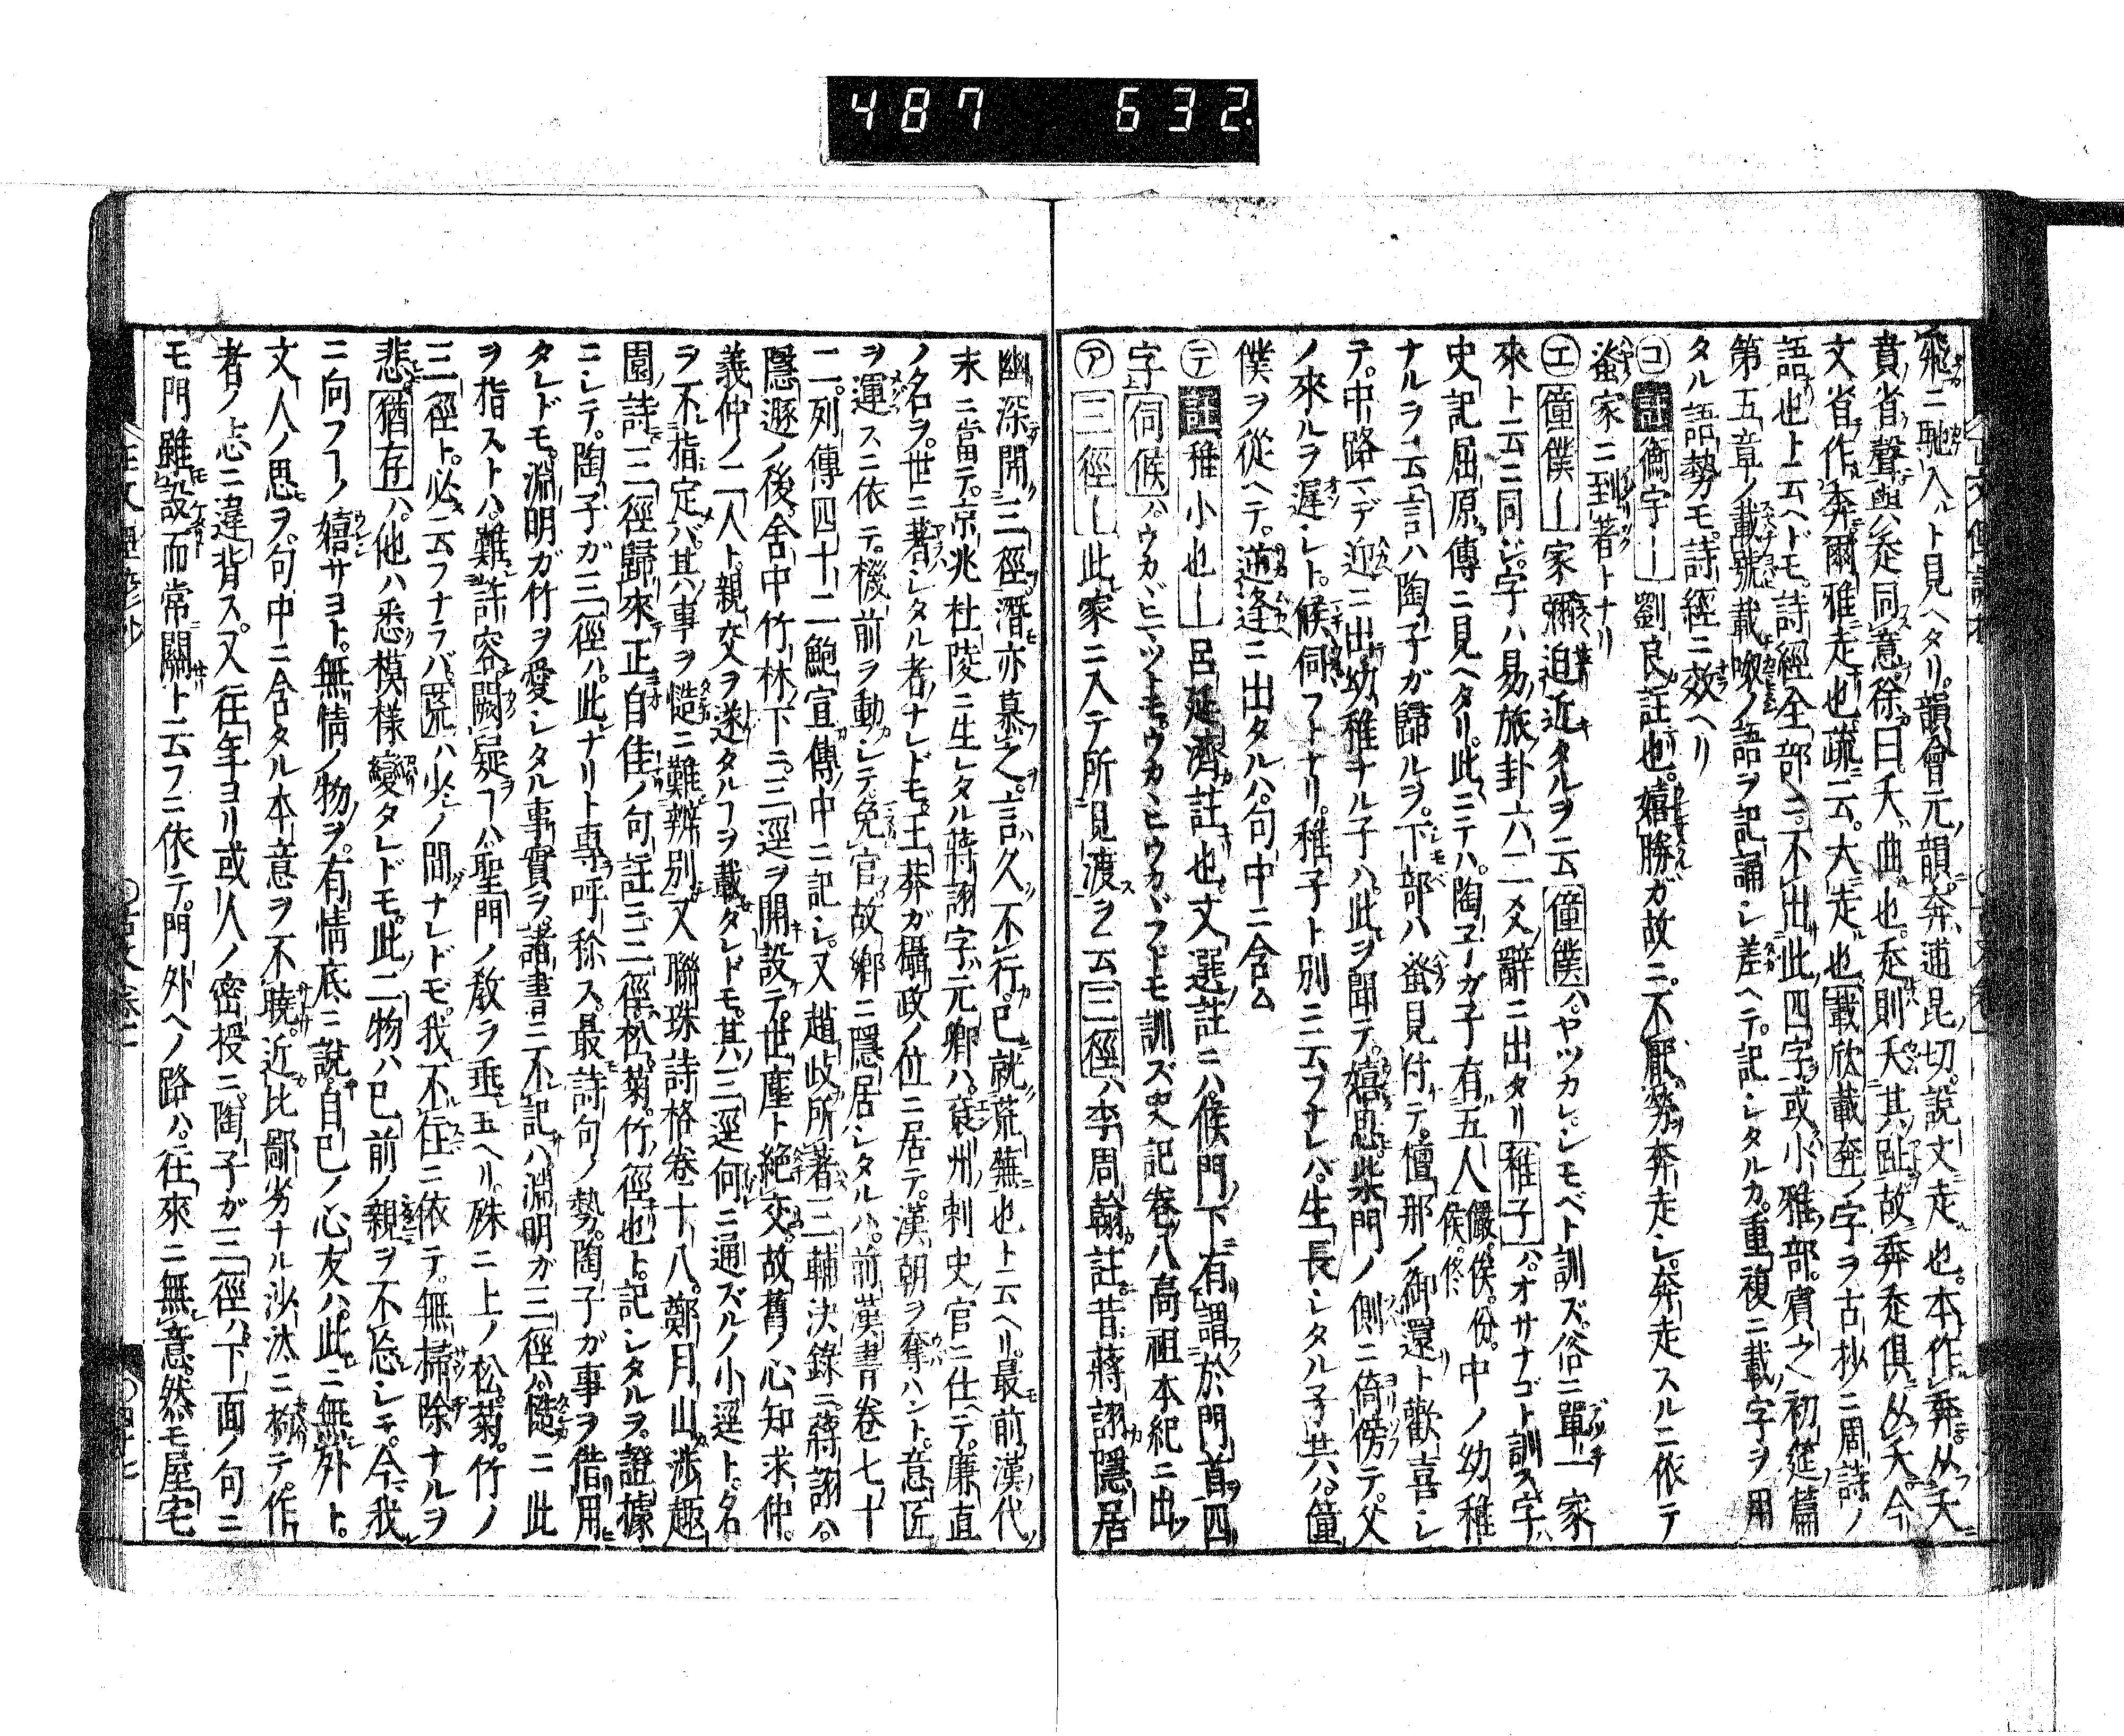 487 632
飛ニ馳入ルト見ヘタリ。韻會元韻。奔逋昆切。説文走也。本作奔从夭
賁省聲與㤓同意。徐曰夭曲也。㤓則夭其趾故奔㤓俱从夭。今
文省作奔爾雅走也疏云。大走也載欣載奔ノ字ヲ古抄ニ周詩ノ
語也ト云ヘドモ。詩經全部ニ不出此四字。或小雅部。賓之初筵篇
第五章ノ載號載呶ノ語ヲ記誦シ差ヘテ。記シタルカ。重複ニ載字ヲ用
タル語勢モ。詩經ニ效ヘリ
㋙註衡宇ー劉良註也。嬉勝ガ故ニ。不厭勞奔走シ。奔走スルニ依テ
蚤家ニ到著トナリ
㋓僮僕ー家彌迫近タルヲ云僮僕ハ。ヤツカレ。シモベト訓ズ俗ニ單一家
來ト云ニ同ジ。字ハ易旅卦六二爻辭ニ出タリ稚子ハ。オサナゴト訓ス字ハ
史記屈原傳ニ見ヘタリ。此ニテハ。陶子ガ子有五人儼。俟。份。佚。佟中ノ幼稚
ナルヲ云言ハ陶子ガ歸ルヲ。下部ハ蚤見付テ。檀那ノ御還ト歡喜シ
テ。中路マデ迎ニ出幼稚ナル子ハ。此ヲ聞テ。嬉思。柴門ノ側ニ倚傍テ。父
ノ來ルヲ遲シト。候伺フトナリ。稚子ト別ニ云フナレハ。生長シタル子共ハ。僮
僕ヲ從ヘテ。迎逢ニ出タルハ。句中ニ含ム
㋢註稚小也ー呂延濟註也。文選註ニハ。候門下有謂於門首四
字伺候ハ。ウカヾヒマツトモ。ウカヾヒウカヾフトモ訓ズ史記卷八高祖本紀ニ出
㋐三徑ー此家ニ入テ所見渡ヲ云三徑ハ李周翰註昔蔣詡隱居
幽深開三徑潛亦慕之。言久不行。已就荒蕪也ト云ヘリ。最前漢代
末ニ當テ。京兆杜陵ニ生レタル蔣詡字元卿ハ。袞州刺史官ニ仕テ。廉直
ノ名ヲ。世ニ著シタル者ナレドモ。王莽ガ攝政ノ位ニ居テ。漢朝ヲ奪ハント。意匠
ヲ運スニ依テ。機前ヲ動シテ。免官。故鄉ニ隱居シタルハ。前漢書卷七十
二。列傳四十二鮑宣傳中ニ記シ。又趙歧所著三輔決錄ニ。蔣詡ハ。
隱遯ノ後。舍中竹林下ニ。三逕ヲ開設テ。世塵ト絶交。故舊ノ心知求仲。
義仲ノ二人ト。親交ヲ遂タルヿヲ載タレドモ。其三逕何ニ通ズルノ小逕ト。名
ヲ不指定バ。其事ヲ慥ニ難辨別又聯珠詩格卷十八。鄭月山渉趣
園詩三徑歸來正自佳ノ句註ニ三徑。松。菊。竹徑也ト。記シタルヲ。證據
ニシテ。陶子ガ三徑ハ。此ナリト專呼称ス。最詩句ノ勢。陶子ガ事ヲ借用
タレドモ。淵明ガ竹ヲ愛シタル事實ヲ。諸書ニ不記ハ淵明ガ三徑ハ。慥ニ此
ヲ指ストハ。難許容。闕疑ヿハ。聖門ノ教ヲ垂玉ヘリ。殊ニ上ノ松。菊。竹ノ
三徑ト。必云フナラバ。荒ハ少ノ間ナレドモ。我不在ニ依テ。無掃除ナルヲ
悲猶存ハ。他ハ悉模樣變タレドモ。此二物ハ已前ノ親ヲ不忘シテ。今我
ニ向フヿノ嬉サヨト。無情ノ物ヲ。有情底ニ説。自己ノ心友ハ。此ニ無外ト。
文人ノ思ヲ。句中ニ含タル本意ヲ不曉。近比鄙劣ナル沙汰ニ。作
者ノ志ニ違背ス。又往年ヨリ或人ノ密授ニ。陶子ガ三徑ハ。下面ノ句ニ
モ門雖設而常關ト云フニ依テ。門外ヘノ路ハ。往來ニ無意。然モ屋宅